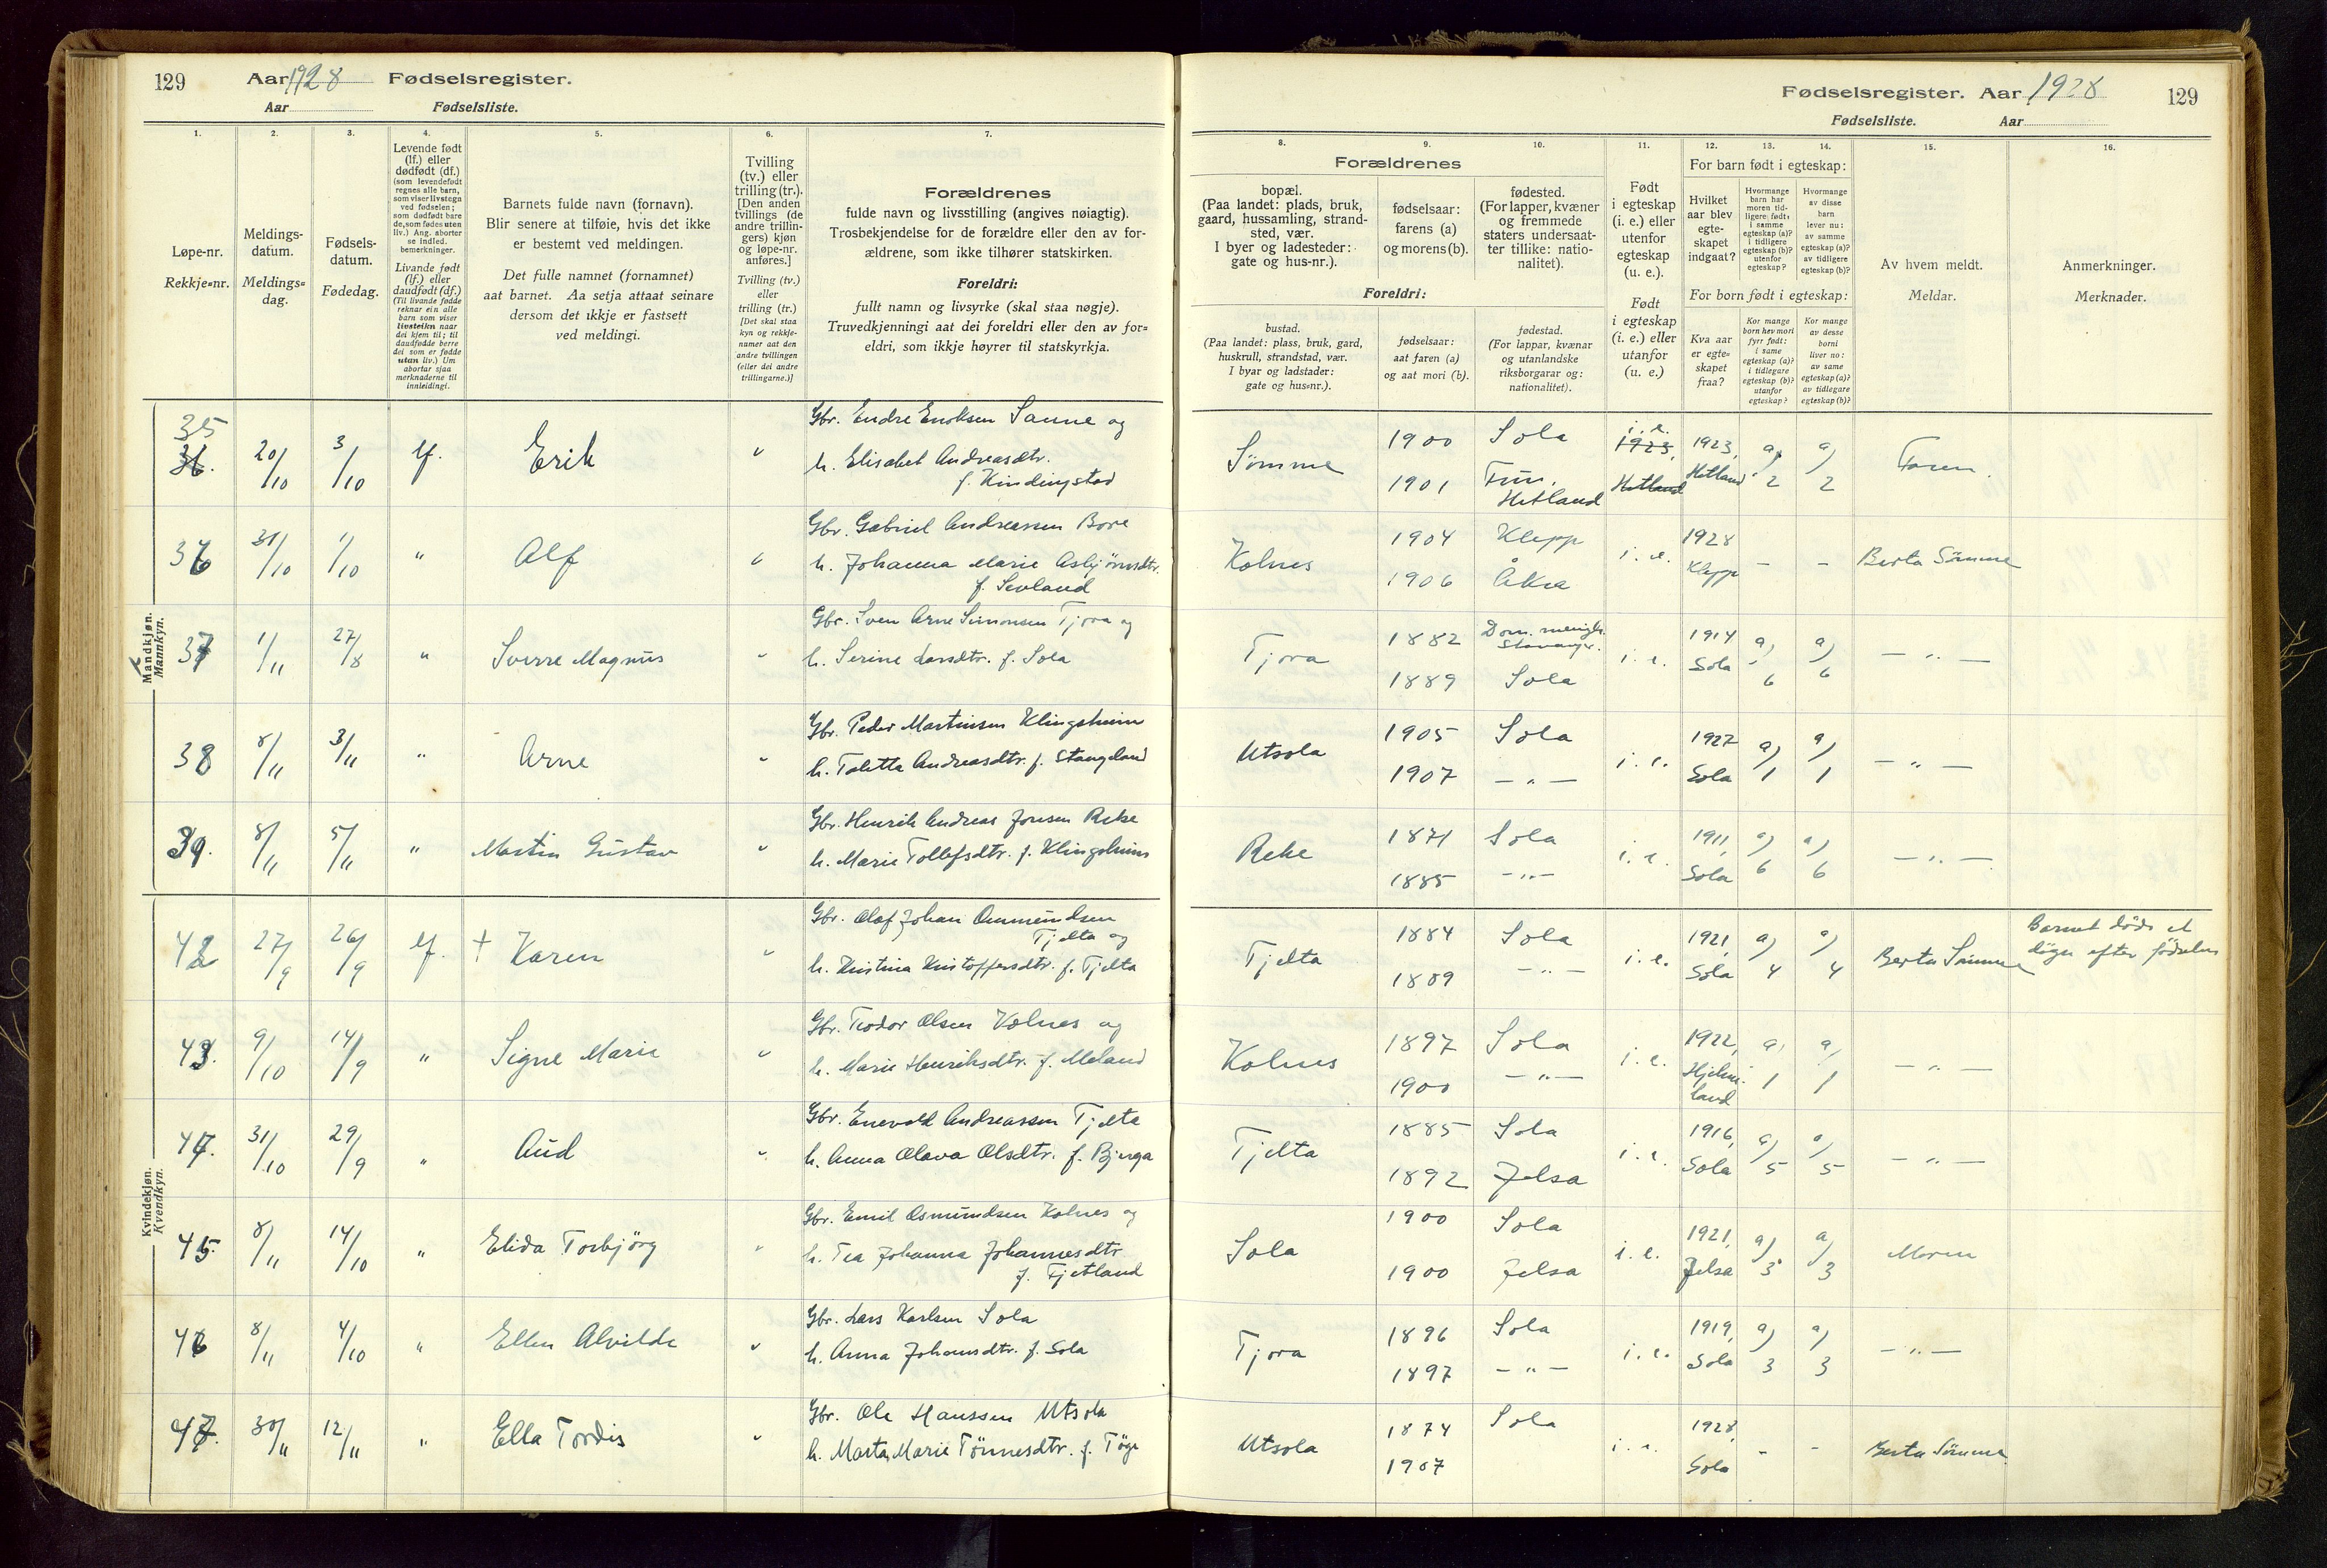 129
Aar 1928 Fødselsregister.
Aar Fødselsliste.
1.
Løpe-nr.
Rekkje-nr.
2.
Meldings-
datum.
Meldings-
dag.
3.
Fødsels-
datum.
Fødedag.
4.
Levende født
(lf.) eller
dødfødt (df.)
(som levendefødt
regnes alle barn,
som viser livstegn
ved fødselen;
som dødfødt bare
de, som fødes uten
liv.) Ang. aborter
se indled.
bemerkninger.
Livande født
(lf.) eller
daudfødt (df.)
(Til livande fødde
reknar ein alle
barn som viser
livsteikn naar
dei kjem til; til
daudfødde berre
dei som er fødde
utan liv.) Um
abortar sjaa
merknaderne til
innleidingi.
5.
Barnets fulde navn (fornavn).
Blir senere at tilføie, hvis det ikke
er bestemt ved meldingen.
Det fulle namnet (fornamnet)
aat barnet. Aa setja attaat seinare
dersom det ikkje er fastsett
ved meldingi.
6.
Tvilling
(tv.) eller
trilling (tr.).
[Den anden
tvillings (de
andre trillin-
gers) kjøn
og løpe-nr.
anføres.]
Tvilling (tv.)
eller
trilling (tr.)
[Det skal staa
kyn og rekkje-
numer aat den
andre tvillingen
(eller dei andre
trillingarne.)]
7.
Forældrenes
fulde navn og livsstilling (angives nøiagtig).
Trosbekjendelse for de forældre eller den av for-
ældrene, som ikke tilhører statskirken.
Foreldri:
fullt namn og livsyrke (skal staa nøgje).
Truvedkjenningi aat dei foreldri eller den av for-
eldri, som ikkje høyrer til statskyrkja.
Fødselsregister. Aar 1928
129
Fødselsliste. Aar
8.
9.
10.
Forældrenes
bopæl.
(Paa landet: plads, bruk,
gaard, hussamling, strand-
sted, vær.
I byer og ladesteder:
gate og hus-nr.).
fødselsaar:
farens (a)
og morens (b).
fødested.
(For lapper, kvæner
og fremmede
staters undersaat-
ter tillike: natio-
nalitet).
Foreldri:
bustad.
(Paa landet: plass, bruk, gard,
huskrull, strandstad, vær.
I byar og ladstader:
gate og hus-nr.).
fødselsaar:
aat faren (a)
og aat mori (b).
fødestad.
(For lappar, kvænar
og utanlandske
riksborgarar og:
nationalitet).
11.
Født
i egteskap
(i. e.) eller
utenfor
egteskap
(u. e.).
Født
i egteskap
(i. e.) eller
utanfor
(u. e.)
12.
13.
14.
For barn født i egteskap:
Hvilket
aar blev
egte-
skapet
indgaat?
Hvormange
barn har
moren tid-
ligere født:
i samme
egteskap (a)?
i tidligere
egteskap (b)?
utenfor
egteskap?
Hvormange
av disse
barn
lever nu:
av samme
egteskap (a)?
av tidligere
egteskap (b)?
For born født i egteskap:
Kva aar
er egte-
skapet
fraa?
Kor mange
born hev mori
fyrr født:
i same
egteskap (a)?
i tidlegare
egteskap (b)?
utanfor
egteskap?
Kor mange
av desse
borni
liver no:
av same
egteskap (a)?
av tidlegare
egteskap (b)?
15.
Av hvem meldt.
Meldar.
16.
Anmerkninger.
Merknader.
Mandkjøn.
Mannkyn.
35
36. 20/10 3/10 lf. Erik " Gbr. Endre Enoksen Sanne og
h. Elisabet Andreasdtr.
f. Kindingstad
Sømme 1900 Sola i. e. 1923, 1923, a) a) Faren.
1901 Hetland Hetland Hetland 2 2
36 31/10 1/10 " Alf " Gbr. Gabriel Andreassen Bore
h. Johanna Marie Asbjørnsdtr.
f. Sevland
Kolnes 1904 Klepp i. e. 1928 - - Berta Sømme
1906 Åkra Klepp
37 1/11 27/8 " Sverre Magnus " Gbr. Sven Arne Simonsen Tjora og
h. Serine Larsdtr. f. Sola
Tjora 1882 Dom. menigh. Stavanger. i. e. 1914 a) a) - " -
1889 Sola Sola 6 6
38 8/11 3/11 " Arne " Gbr. Peder Martinsen Klingsheim
h. Taletta Andreasdtr. f. Stangeland
Utsola 1905 Sola i. e. 1927 a) a) - " -
1907 - " - Sola 1 1
39. 8/11 5/11 " Martin Gustav " Gbr. Henrik Andreas Jonsen Reke
h. Marie Tollefsdtr. f. Klingsheim
Reke 1871 Sola i. e. 1911, a) a) - " -
1885 - " - Sola 6 6
Kvindekjøn.
Kvendkyn.
42 27/9 26/9 lf. † Karen " Gbr. Olaf Johan Ommundsen
Tjelta og
h. Kristina Kristoffersdtr. f. Tjelta
Tjelta 1884 Sola i. e. 1921, a) a) Berta Sømme Barnet døde et
1889 - " - Sola 4 4 døgn efter fødselen
43. 9/10 14/9 " Signe Marie " Gbr. Teodor Olsen Kolnes og
h. Marie Henriksdtr. f. Meland
Kolnes 1897 Sola i. e. 1922, a) a) - " -
1900 - " - Hjelme- 1 1
land
44. 31/10 29/9 " Aud " Gbr. Enevald Andreassen Tjelta
h. Anna Olava Olsdtr. f. Bjerga
Tjelta 1885 Sola i. e. 1916, a) a) - " -
1892 Jelsa Sola 5 5
45. 8/11 14/10 " Elida Torbjørg " Gbr. Emil Osmundsen Kolnes og
h. Tea Johanna Johannesdtr
f. Fjetland
Sola 1900 Sola i. e. 1921, a) a) Moren
1900 Jelsa Jelsa 3 3
46 8/11 4/10 " Ellen Alvilde " Gbr. Lars Karlsen Sola
h. Anna Johansdtr. f. Sola
Tjora 1896 Sola i. e. 1919, a) a) - " -
1897 - " - Sola 3 3
47. 30/11 12/11 " Ella Tordis " Gbr. Ole Hanssen Utsola
h. Marta Marie Tønnesdtr. f.
Utsola 1874 Sola i. e. 1928, - - Berta Sømme
1907 Sola